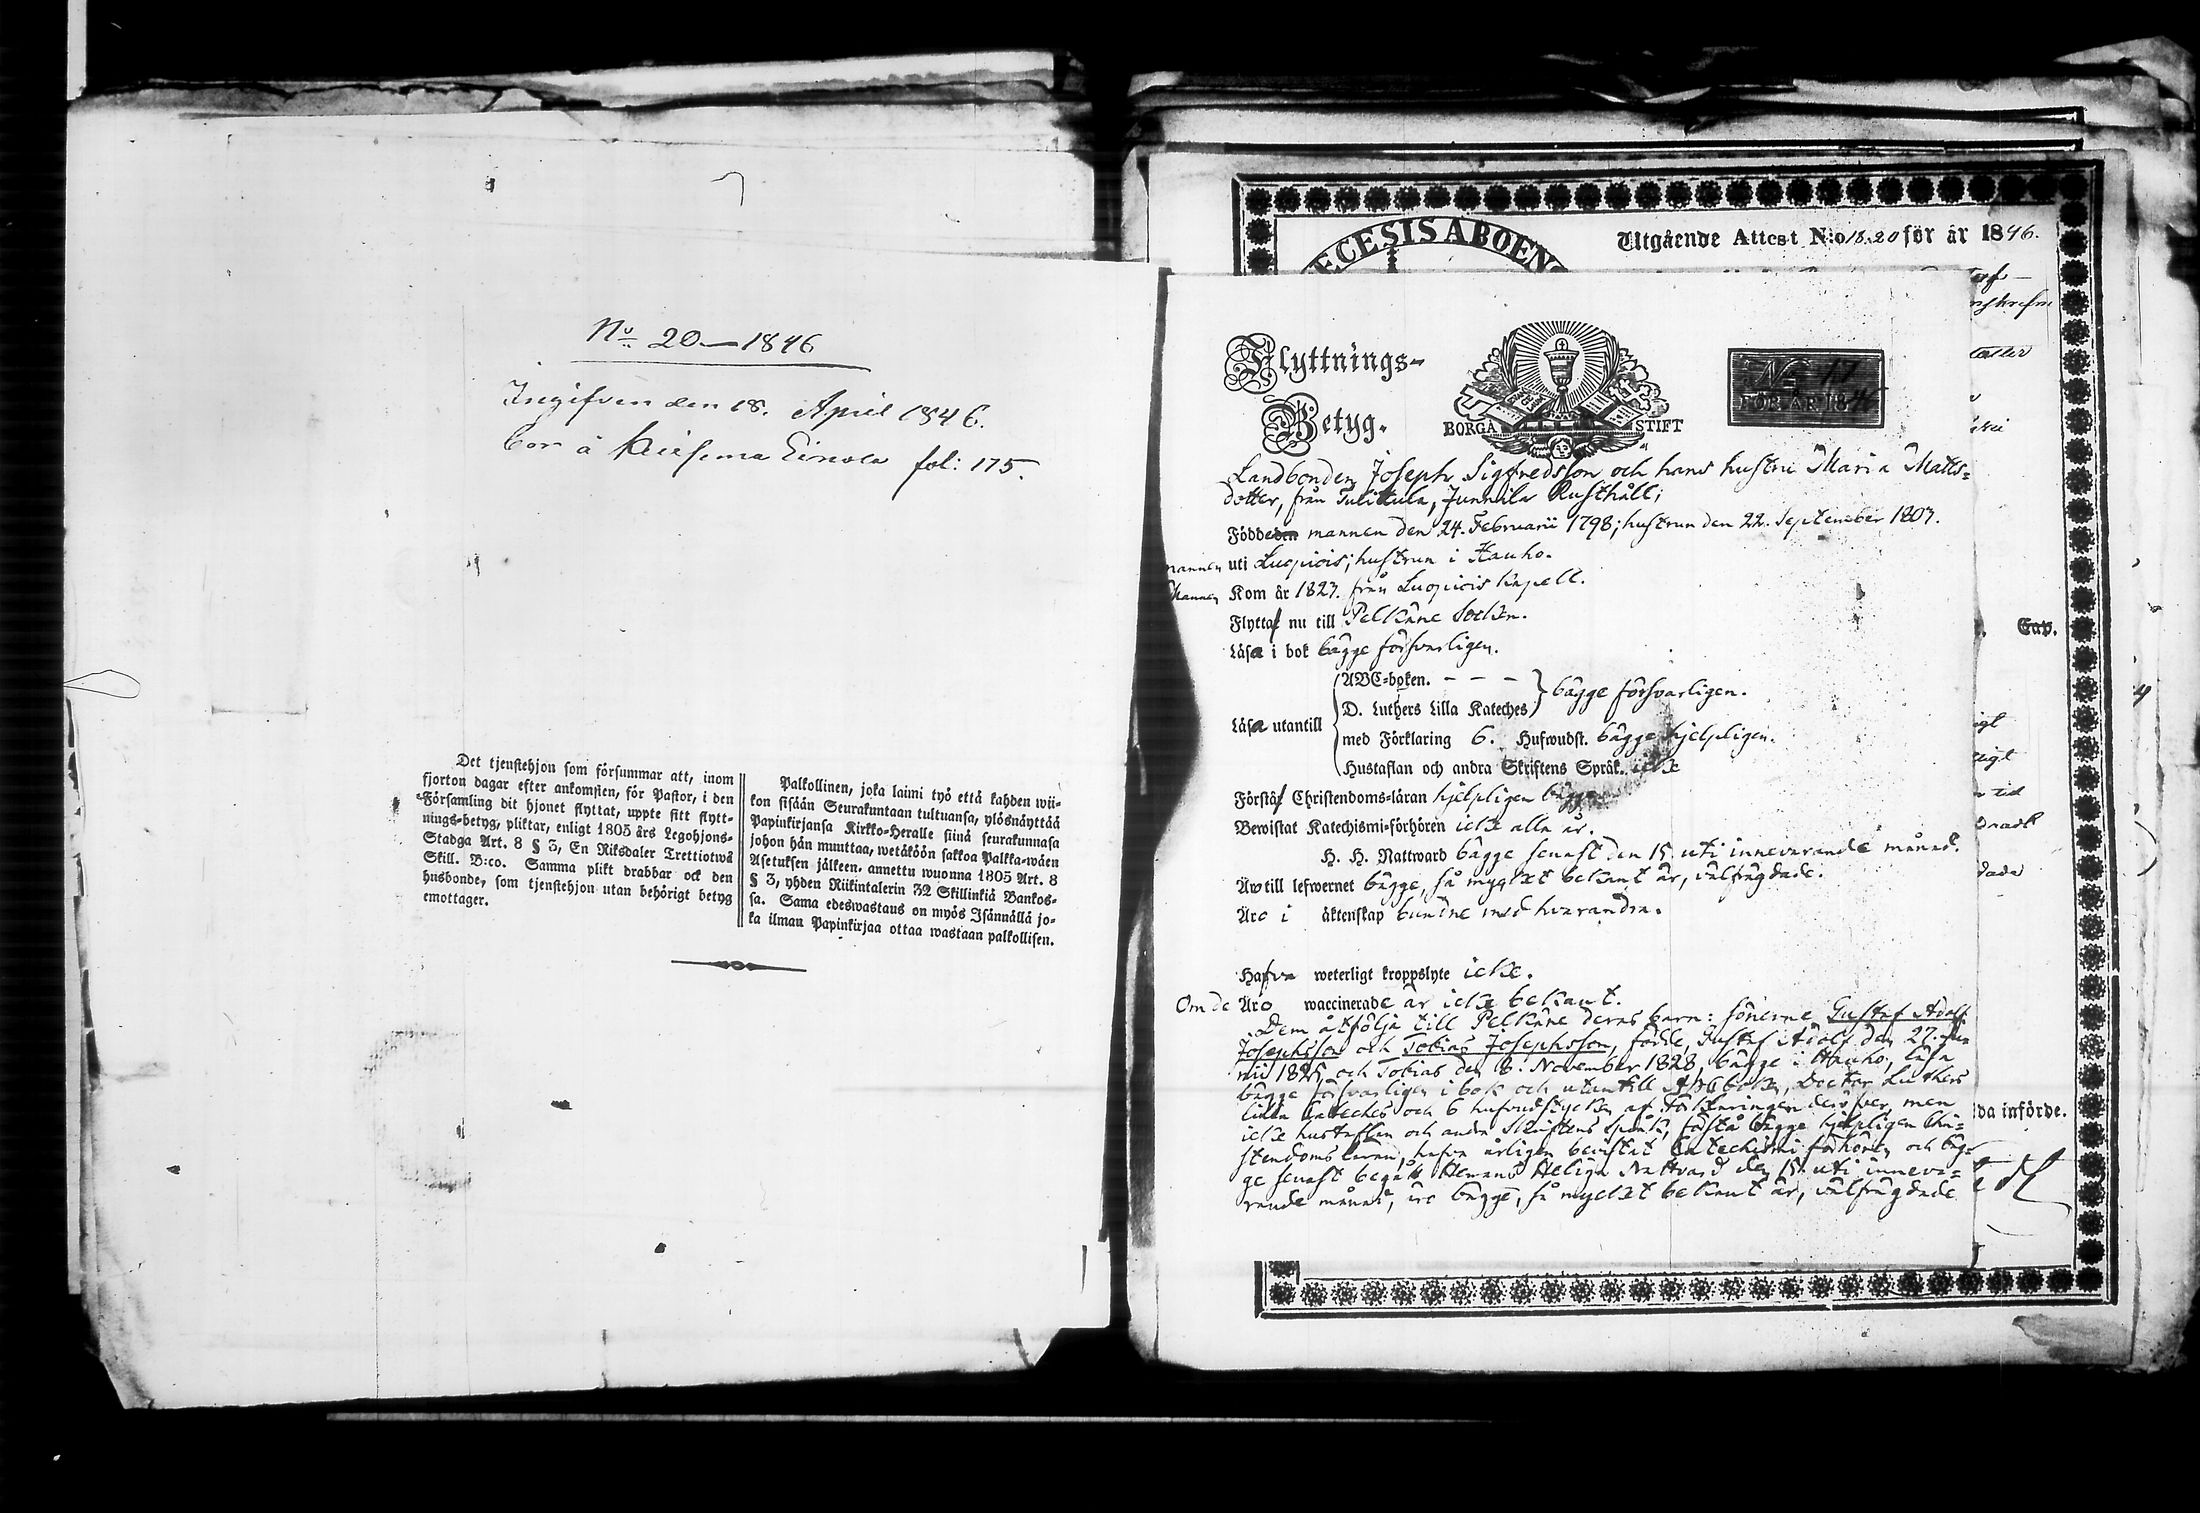 No 20 — 1846
Ingifven den 18. April 1846.
bor å Einola fol: 175.
Det tjenstehjon som försummar att, inom
fjorton dagar efter ankomsten, för Pastor, i den
Församling dit hjonet flyttat, uppte sitt flytt-
nings-betyg, pliktar, enligt 1805 års Legohjons-
Stadga Art. 8 § 3, En Riksdaler Trettiotwå
Skill. B:co. Samma plikt drabbar ock den
husbonde, som tjenstehjon utan behörigt betyg
emottager.
Palkollinen, joka laimi työ että kahden wii-
kon sisään Seurakuntaan tultuansa, ylösnäyttää
Papinkirjansa Kirkko-Heralle siinä seurakunnasa
johon hän muuttaa, wetäköön sakkoa Palkka-wäen
Asetuksen jälkeen. annettu wuonna 1805 Art. 8
§ 3, yhden Riikintalerin 32 Skillinkiä Bankos-
sa. Sama edeswastaus on myös Isännällä jo-
ka ilman Papinkirjaa ottaa wastaan palkollisen.
ECESIS ABOEN
Utgående Attest N:o 18.20 för år 1846.
Flyttnings-
Betyg.
BORGÅ STIFT
No 17
FÖR ÅR 184
Landbonden Joseph Sigfredsson och hans hustru Maria Matts-
dotter, från Tulittula, Junnila Rusthåll;
Födde den mannen den 24. Februarii 1798; hustrun den 22. September 1807.
mannen uti Luopiois; hustrun i Hauho.
Mannen Kom år 1827. från Luopiois kapell.
Flytta nu till Pelkäne Socken.
Läsa i bok bägge försvarligen.
Läsa utantill
ABC-boken. - - -
D. Luthers Lilla Kateches
bägge försvarligen.
med Förklaring 6. Hufwudst. bägge hjelpligen.
Hustaflan och andra Skriftens Språk. icke
Förstå Christendoms-läran hjelpligen bägge
Bewistat Katechismi-förhören icke alla år.
H. H. Nattward bägge senast den 15. uti innevarande månad.
Äro till lefwernet bägge, så mycket bekant är, välfrägdade.
Äro i äktenskap bundne med hvarandra.
Hafva weterligt kroppslyte icke.
Om de Äro waccinerade är icke bekant.
Dem åtfölja till Pelkäne deras barn: sönerne Gustaf Adolf
Josephsson och Tobias Josephsson, födde, Gustaf Adolf den 27. Jan
rii 1825 och Tobias den 8. November 1828, bägge i Hauho, läsa
bägge försvarligen i bok och utantill Abcboken, Doctor Luthers
lilla Cateches och 6 hufvudstycken af Förklaringen deröfver, men
icke hustaflan och andra Skriftens språk, förstå bägge hjelpligen Chri-
stendoms läran, hafva årligen bevistat Catechismi förhören, och bäg-
ge senast begått Herrans Heliga Nattvard den 15. uti inneva-
rande månad, äro bägge, så mycket bekant är, välfrägdade
da införde.